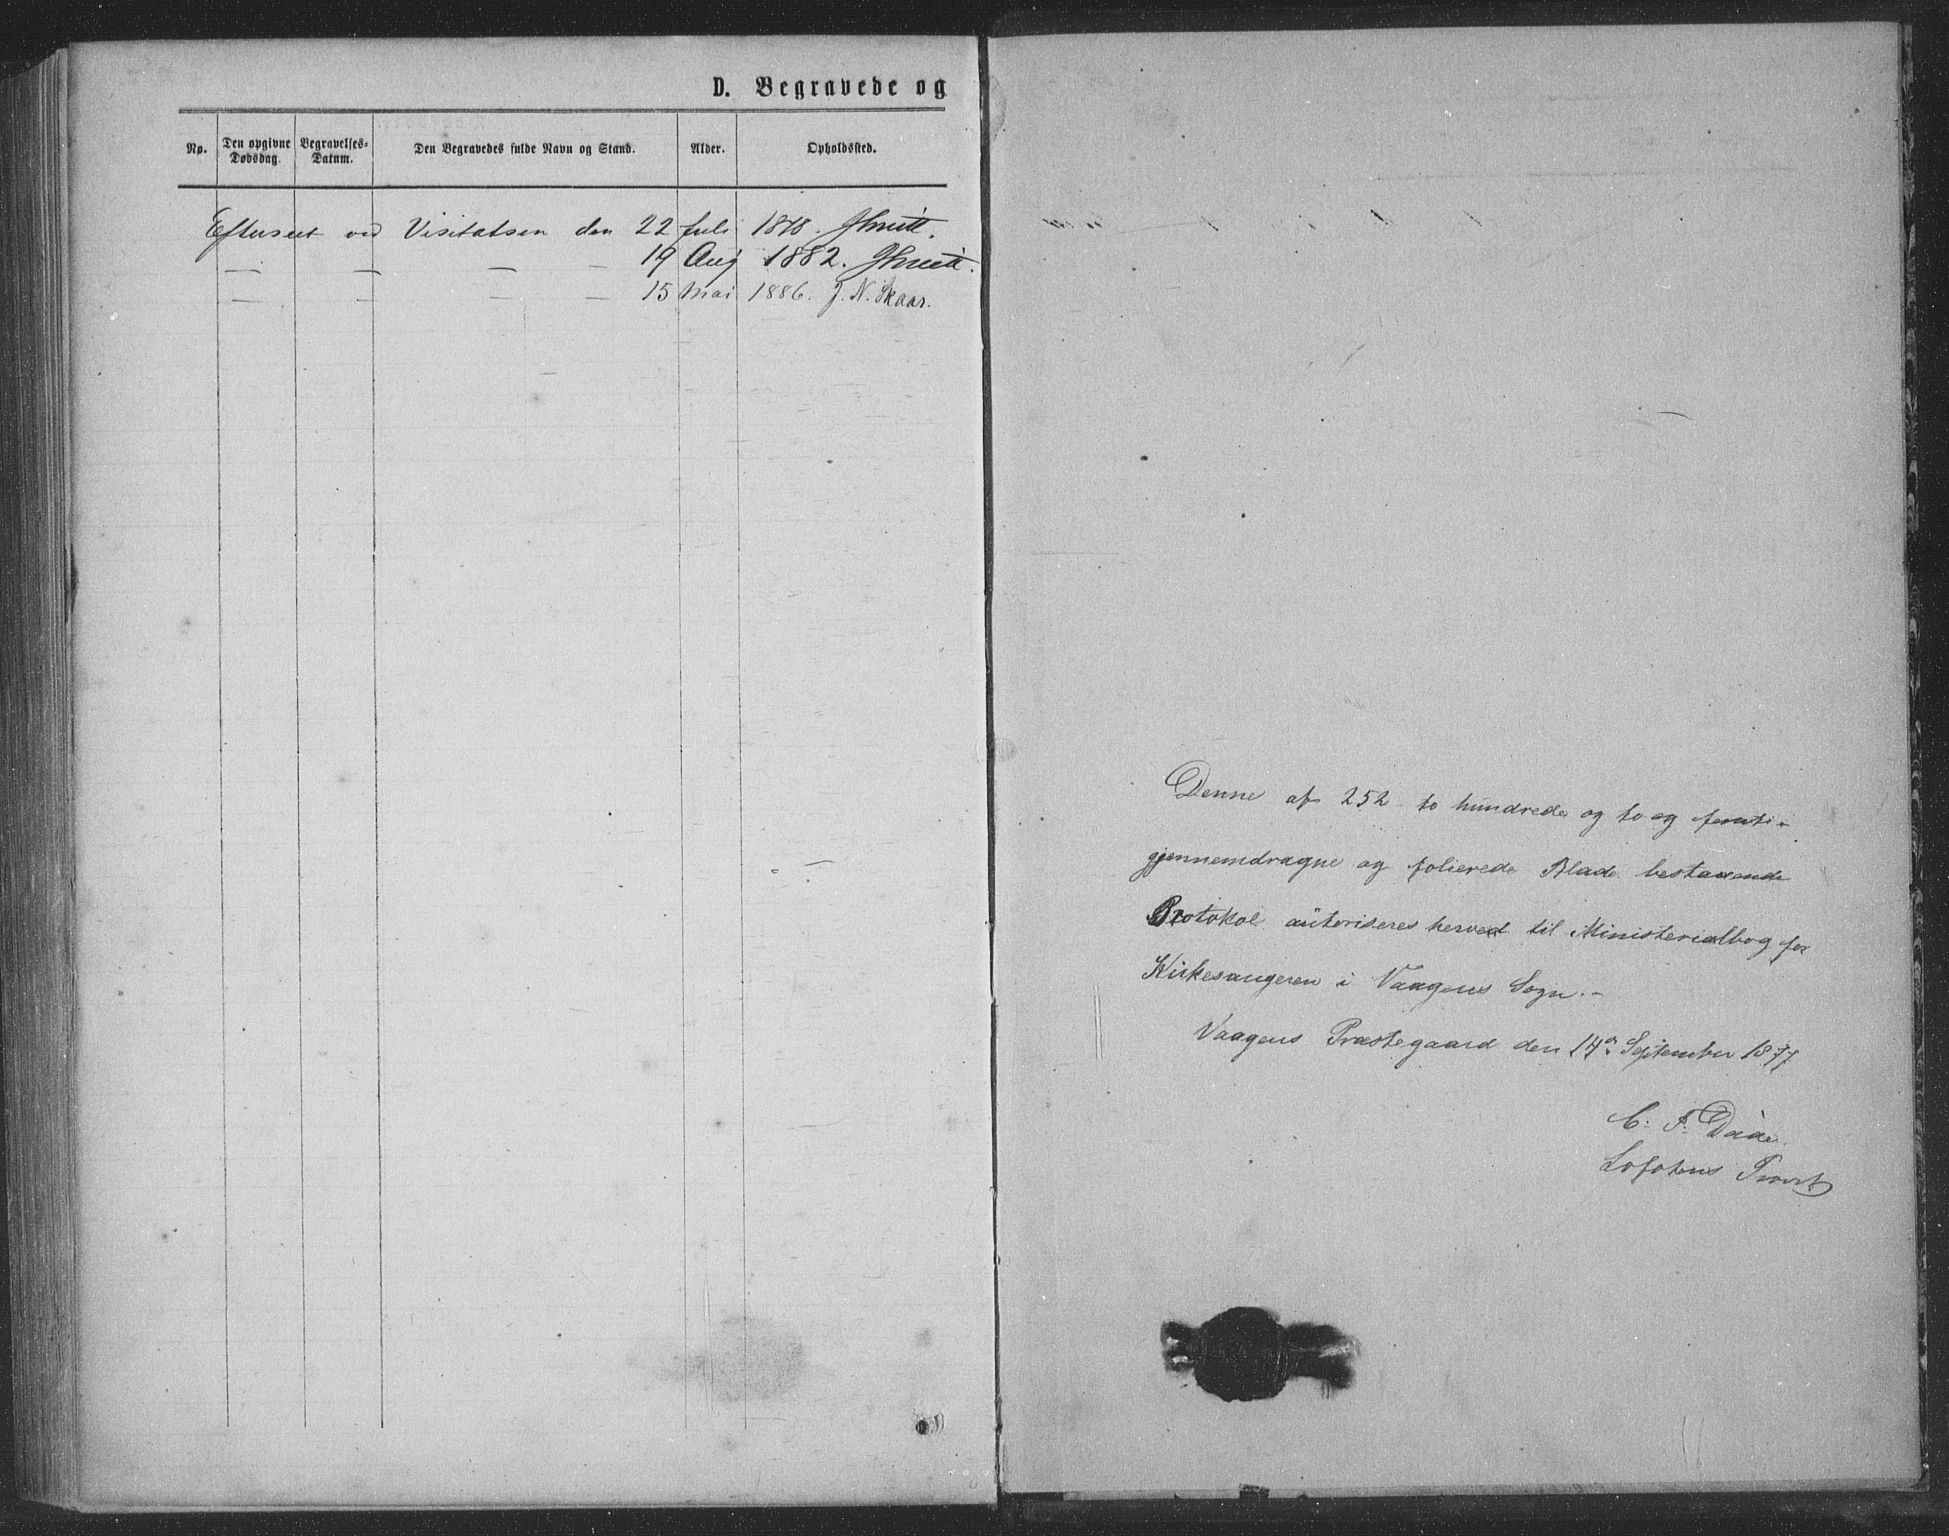 D. Begravede og
No. Den opgivne Dødsdag. Begravelses-Datum. Den Begravedes fulde Navn og Stand. Alder. Opholdssted.
Efterseet ved Visitatsen den 22 Juli 1878. JSmitt.
— — — — 19 Aug 1882. JSmitt.
— — — — 15 Mai 1886. J. N. Skaar.
Denne af 252 to hundrede og to og femti-
gjennemdragne og folierede Blade bestaaende
Protokol autoriseres herved til Ministerialbog for
Kirkesangeren i Vaagens Sogn.-
Vaagens Præstegaard den 14de September 1877
C. F. Daae.
Lofotens Provst